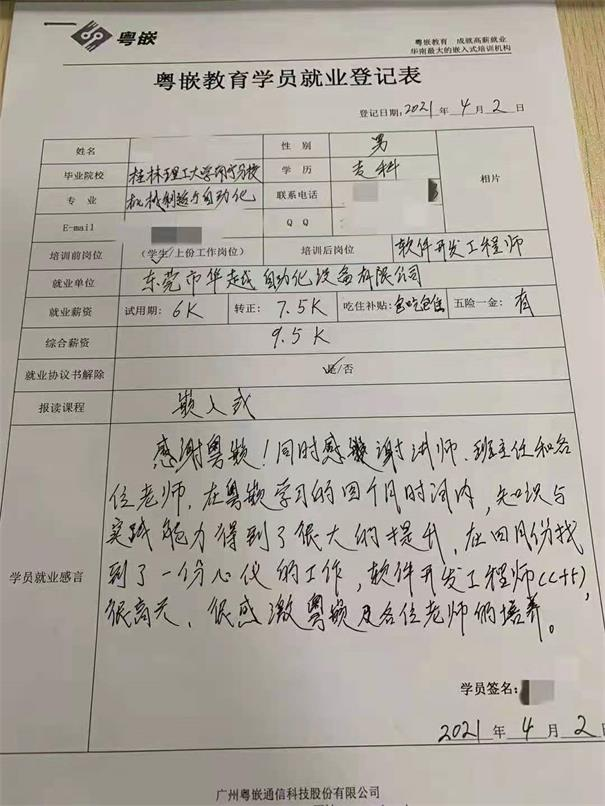 粤嵌
粤嵌教育 成就高薪就业
华南最大的嵌入式培训机构
粤嵌教育学员就业登记表
登记日期:2021年4月2日
姓名 性别 男
毕业院校 桂林理工大学南宁分校 学历 专科 相片
专业 机械制造与自动化 联系电话
E-mail QQ
培训前岗位 (学生/上份工作岗位) 培训后岗位 软件开发工程师
就业单位 东莞市华越自动化设备有限公司
就业薪资 试用期: 6K 转正: 7.5K 吃住补贴:包吃包住 五险一金: 有
综合薪资 9.5K
就业协议书解除 是/否
报读课程 嵌入式
感谢粤嵌!同时感谢讲师、班主任和各
位老师,在粤嵌学习的四个月时间内,知识与
实践能力得到了很大的提升,在四月份找
到了一份心仪的工作,软件开发工程师(C++),
学员就业感言
很高兴、很感激粤嵌及各位老师的培养。
学员签名:
2021年4月2日
广州粤嵌通信科技股份有限公司